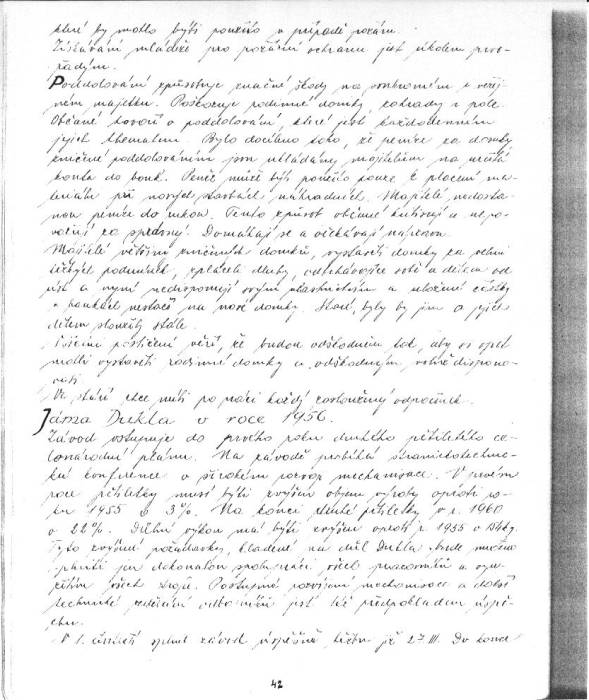 které by mohlo býti použito v případě požáru.
Získávání mládeže pro požární ochranu jest úkolem prvo-
řadým.
Poddolování způsobuje značné škody na soukromém i veřej-
ném majetku. Poškozuje rodinné domky, zahrady i pole.
Občané hovoří o poddolování, které jest každodenním
jejich thematem. Bylo docíleno toho, že peníze za domky
zničené poddolováním jsou ukládány majitelům na určitá
konta do bank. Peněz může býti použito pouze k placení ma-
teriálu při nových stavbách náhradních. Majitelé nedosta-
nou peníze do rukou. Tento způsob občané kritisují a nepo-
važují za správný. Domáhají se a očekávají nápravu.
Majitelé většinou zničených domků, vystavěli domky za velmi
těžkých podmínek, spláceli dluhy, odříkávajíce sobě a dětem od
úst a nyní nedisponují svým vlastnictvím a uložené částky
v bankách nestačí na nové domky. Staré, byly by jim a jejich
dětem sloužily stále.
Všichni postižení věří, že budou odškodněni tak, aby si opět
mohli vystavěti rodinné domky a odškodným, volně dispono-
vati
Ve stáří chce míti po práci každý zasloužený odpočinek.
Jáma Dukla v roce 1956.
Závod vstupuje do prvého roku druhého pětiletého ce-
lonárodní plánu. Na závodě proběhla stranickotechnic-
ká konference o širokém rozvoji mechanisace. V prvém
roce pětiletky musí býti zvýšen objem výroby oproti ro-
ku 1955 o 3%. Na konci druhé pětiletky v r. 1960
o 22%. Důlní výkon má býti zvýšen oproti r. 1955 o
Tyto zvýšené požadavky, kladené na důl Dukla bude možno
splniti jen dokonalou spoluprací všech pracovníků a
všech strojů. Postupné rozvíjení mechanisace a dobré
technické odborníků jest též předpokladem úspě-
chu.
V 1. čtvrtletí splnil závod úspěšně těžbu již 27. III. Do konce
42